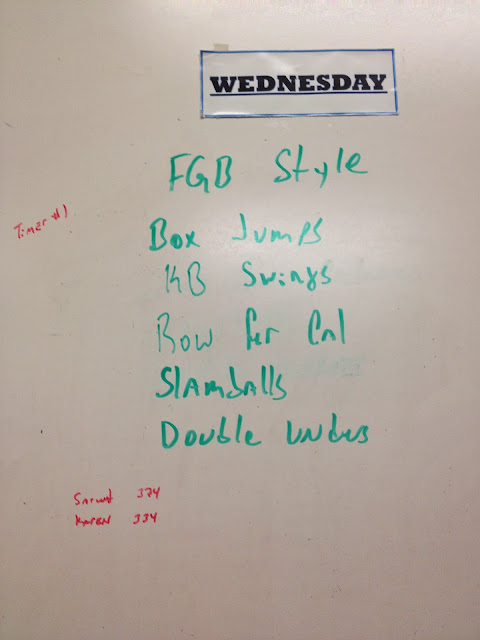 WEDNESDAY
FGB Style
Timer #1
Box Jumps
KB Swings
Row for Cal
Slamballs
Double Unders
374
Karen 334